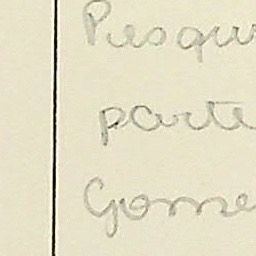 Pesqu
parte
Gome